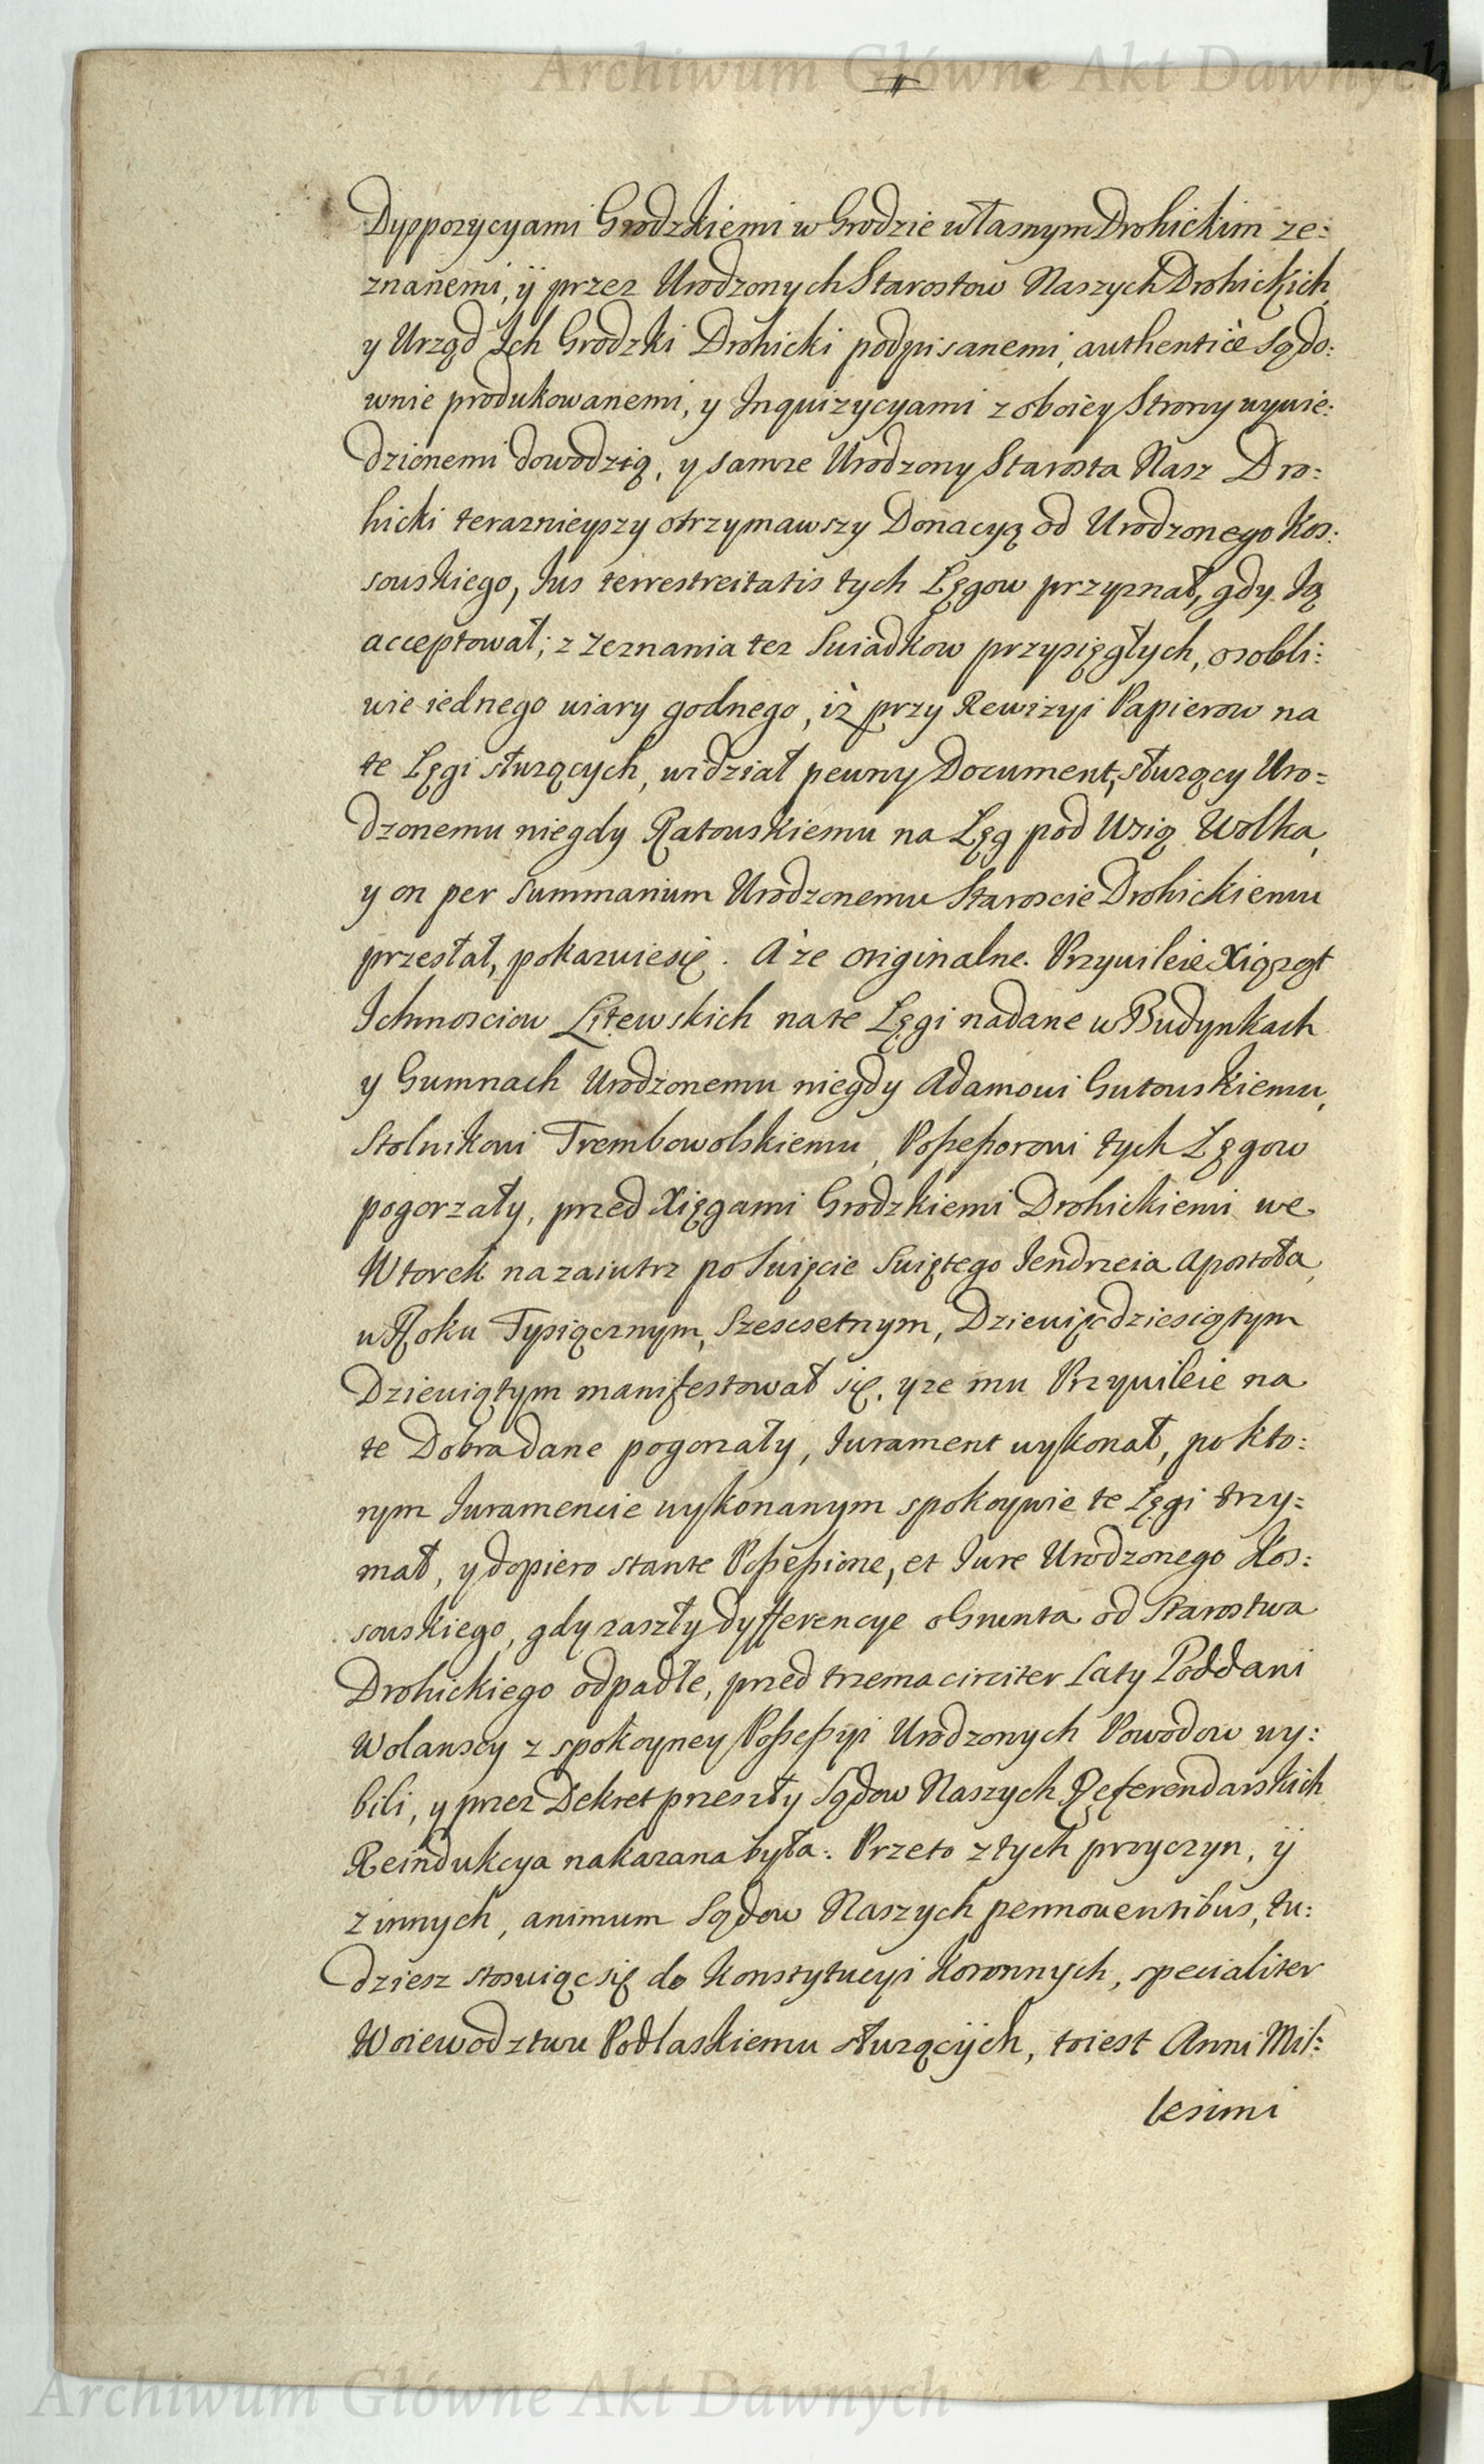 Archiwum Główne Akt Dawnych
Dyspozycyami Grodzkiemi w Grodzie własnym Drohickim ze:
znanemi, ÿ przez Urodzonych Starostow Naszych Drohickich
y Urząd Jch Grodzki Drohicki podpisanemi, authenticè Sądo:
wnie produkowanemi, y Jnquizycyami z oboiey Strony wywie:
dzionemi dowodzią, y samże Urodzony Starosta Nasz Dro:
hicki teraznieyszy otrzymawszy Donacyą od Urodzonego Kos:
sowskiego, Jus terrestreitatis tych Łęgow przyznał, gdy Ją
acceptował; z Zeznania też Swiadkow przysięgłych, osobli:
wie iednego wiary godnego, iż przy Rewizyi Papierow na
te Łęgi służących, widział pewny Document, służący Uro=
dzonemu niegdy Ratowskiemu na Łęg pod Wsią Wolka,
y on per Summarium Urodzonemu Staroscie Drohickiemu
przesłał, pokazuie się. A że originalne Przywileie Xiążąt
Jchmosciow Litewskich na te Łęgi nadane w Budynkach
y Gumnach Urodzonemu niegdy Adamowi Gutowskiemu,
Stolnikowi Trembowolskiemu, Possessorowi tych Łęgow
pogorzały, przed Xięgami Grodzkiemi Drohickiemi we
Wtorek nazaiutrz po Swięcie Swiętego Jendrzeia Apostoła,
w Roku Tysiącznym, Szescsetnym, Dziewięćdziesiątym
Dziewiątym manifestował się, y że mu Przywileie na
te Dobra dane pogorzały, Jurament wykonał, po kto:
rym Juramencie wykonanym spokoynie te Łęgi trzy=
mał, y dopiero stante Possessione, et Jure Urodzonego Kos:
sowskiego, gdy zaszły dyfferencye o Grunta od Starostwa
Drohickiego odpadłe, przed trzema circiter Laty Poddani
Wolanscy z spokoyney Possessyi Urodzonych Powodow wy:
bili, y przez Dekret przeszły Sądow Naszych Referendarskich
Reindukcya nakazana była: Przeto z tych przyczyn, ÿ
z innych, animum Sądow Naszych permoventibus, tu:
dziesz stosuiąc się do Konstytucyi Koronnych, specialiter
Woiewodztwu Podlaskiemu służącÿch, toiest Anni Mil:
lesimi
Archiwum Główne Akt Dawnych